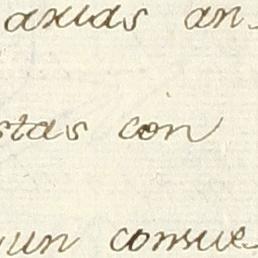 axias an
stas con
un consue